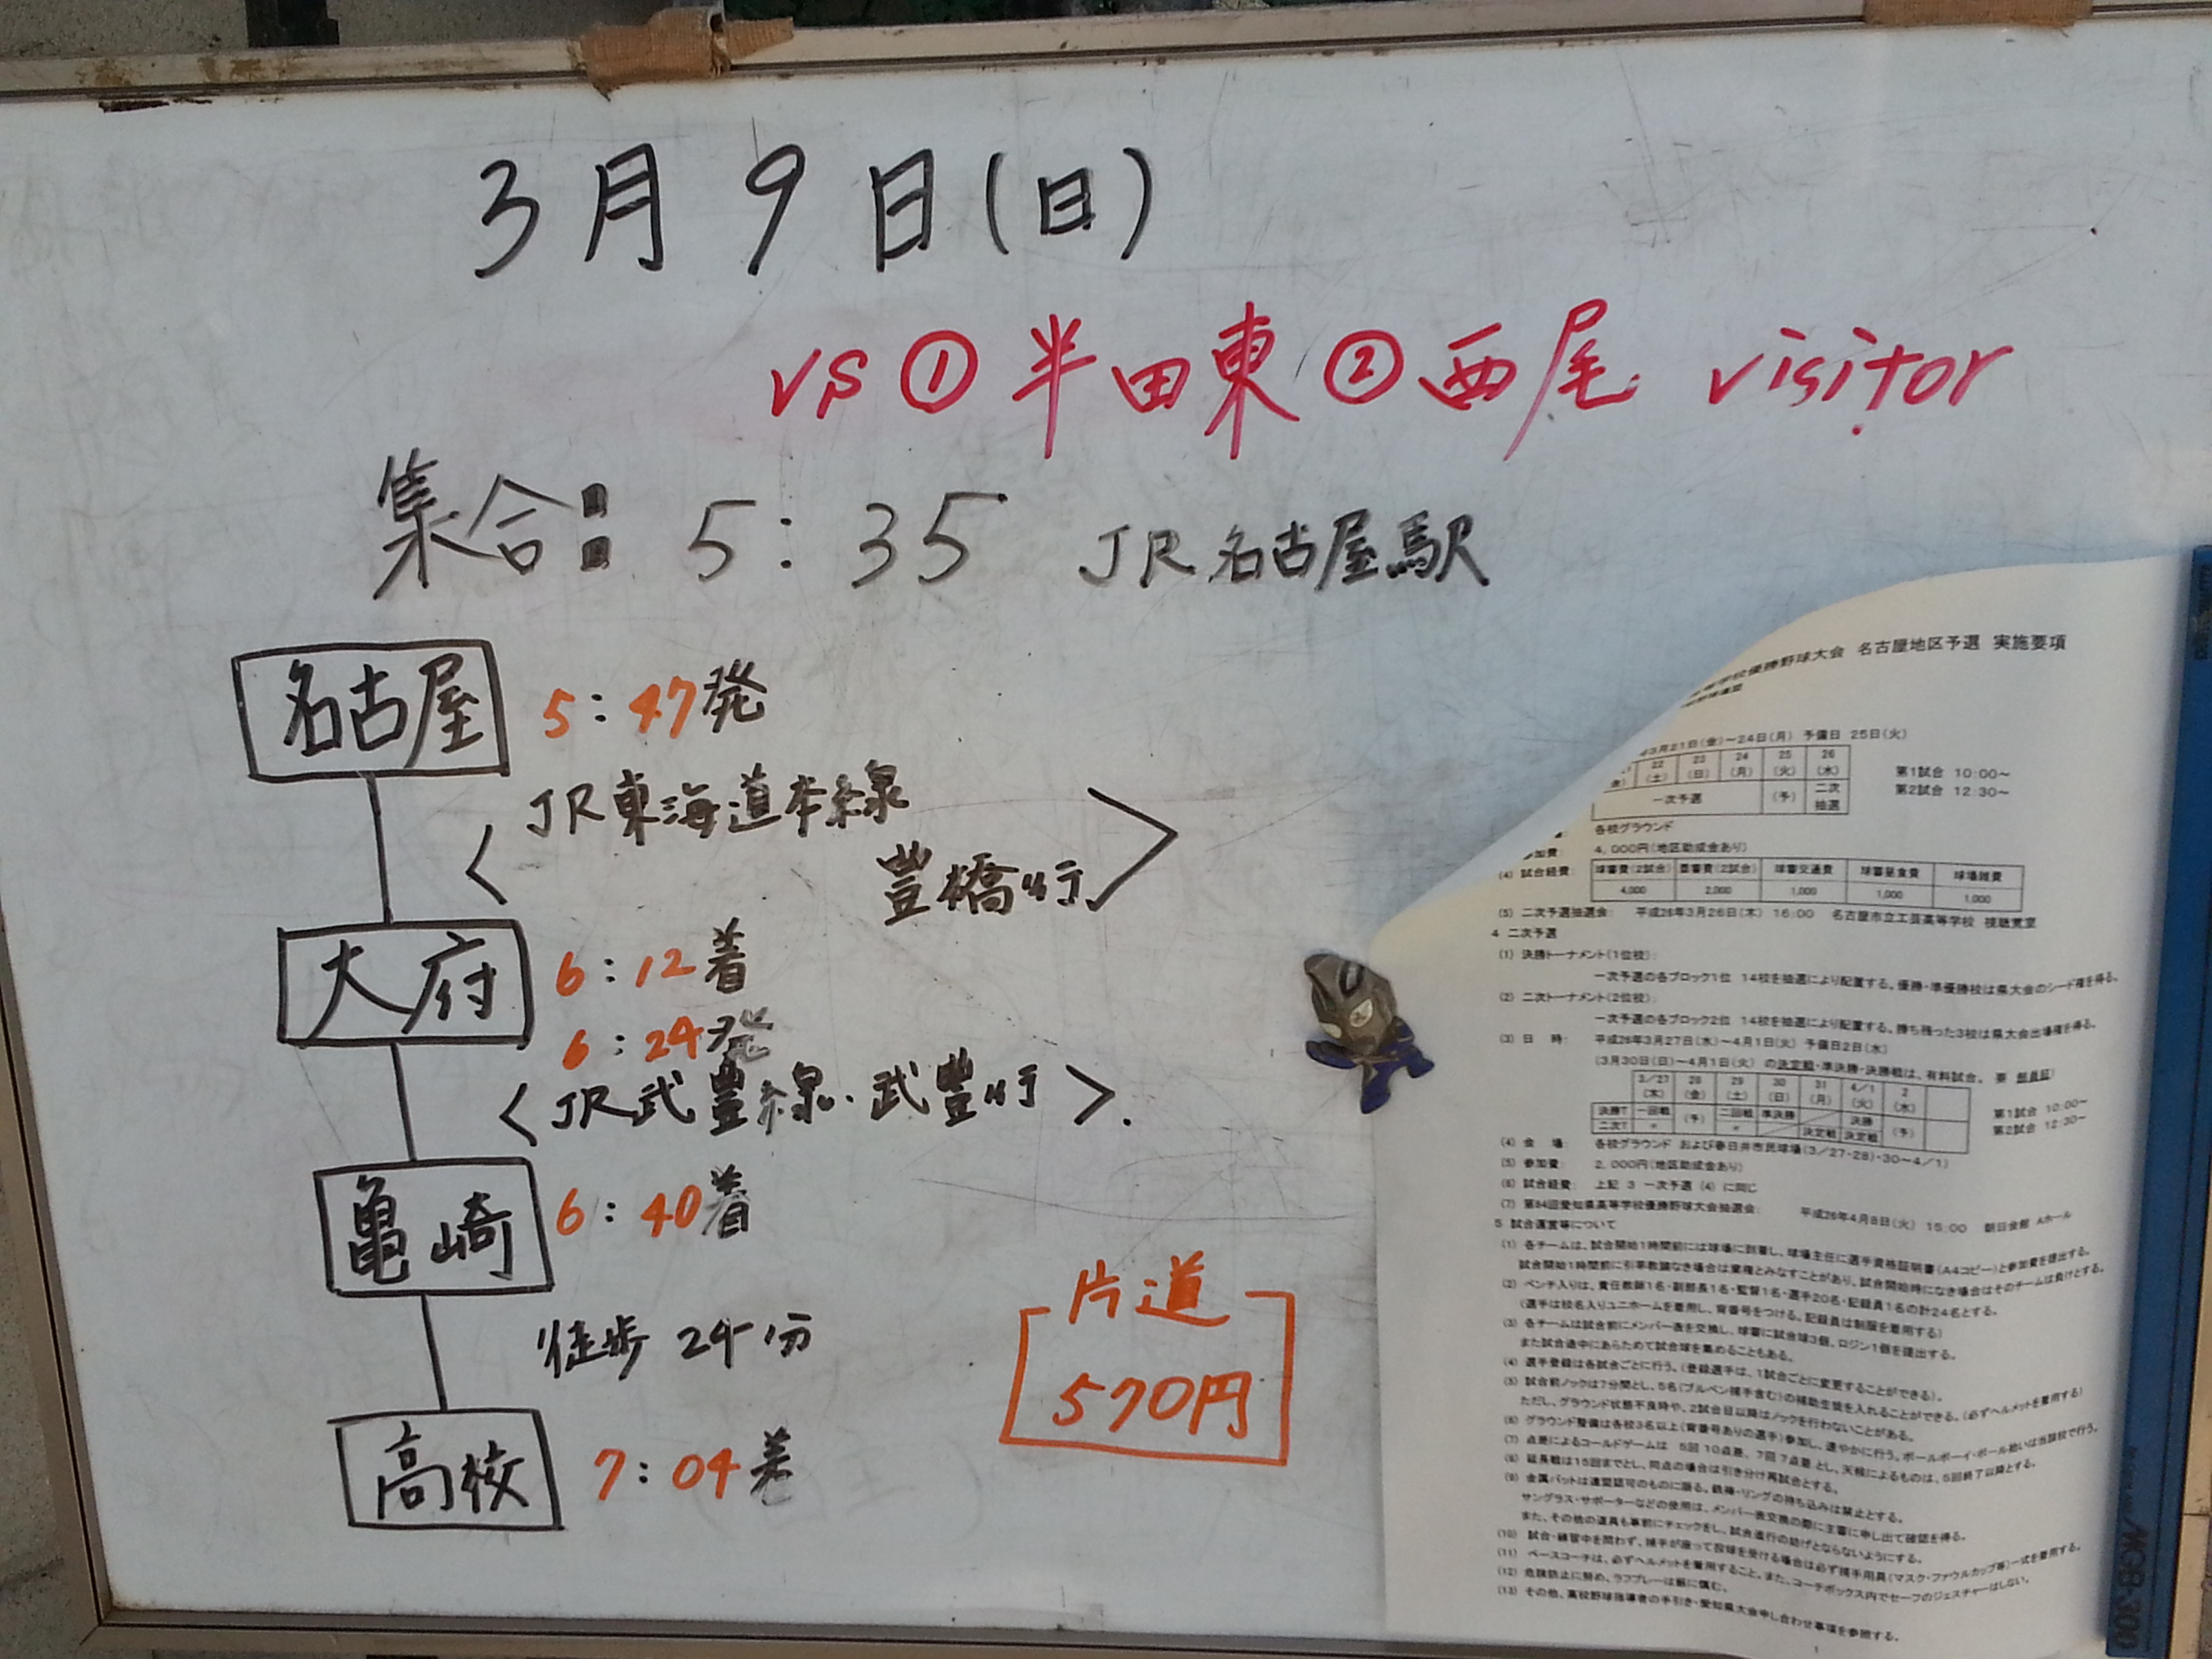 3月9日(日)
vs ① 半田東 ② 西尾 visitor
集合: 5:35 JR名古屋駅
名古屋 5:47発
<JR東海道本線
豊橋行>
大府 6:12着
6:24発
<JR武豊線・武豊行>
亀崎 6:40着
徒歩 24分
高校 7:04着
片道
570円
学校優勝野球大会 名古屋地区予選 実施要項
3月21日(金)~24日(月) 予備日 25日(火)
22 23 24 25 26
(土) (日) (月) (火) (水)
一次予選 (予) 二次抽選
第1試合 10:00~
第2試合 12:30~
各校グラウンド
参加費: 4,000円(地区助成金あり)
(4) 試合経費: 球審費(2試合) 塁審費(2試合) 球審交通費 球審昼食費 球場雑費
4,000 2,000 1,000 1,000 1,000
(5) 二次予選抽選会: 平成26年3月26日(木) 16:00 名古屋市立工芸高等学校 視聴覚室
4 二次予選
(1) 決勝トーナメント(1位校):
一次予選の各ブロック1位 14校を抽選により配置する。優勝・準優勝校は県大会のシード権を得る。
(2) 二次トーナメント(2位校):
一次予選の各ブロック2位 14校を抽選により配置する。勝ち残った3校は県大会出場権を得る。
(3) 日 時: 平成26年3月27日(水)~4月1日(火) 予備日2日(水)
(3月30日(日)~4月1日(火) の決定戦・準決勝・決勝戦は、有料試合。
3/27 28 29 30 31 4/1 2
(木) (金) (土) (日) (月) (火) (水)
決勝T 一回戦 (予) 二回戦 準決勝 決勝 (予)
二次T 〃 〃 決定戦 決定戦
第1試合 10:00~
第2試合 12:30~
(4) 会 場: 各校グラウンド および春日井市民球場(3/27・28)・30~4/1)
(5) 参加費: 2,000円(地区助成金あり)
(6) 試合経費: 上記 3 一次予選 (4) に同じ
(7) 第84回愛知県高等学校優勝野球大会抽選会: 平成26年4月8日(火) 15:00 朝日会館 Aホール
5 試合運営等について
(1) 各チームは、試合開始1時間前には球場に到着し、球場主任に選手資格証明書(A4コピー)と参加費を提出する。
試合開始1時間前に引率教諭なき場合は棄権とみなすことがあり、試合開始時になき場合はそのチームは負けとする。
(2) ベンチ入りは、責任教師1名・副部長1名・監督1名・選手20名・記録員1名の計24名とする。
(選手は校名入りユニホームを着用し、背番号をつける。記録員は制服を着用する)
(3) 各チームは試合前にメンバー表を交換し、球審に試合球3個、ロジン1個を提出する。
また試合途中にあらためて試合球を集めることもある。
(4) 選手登録は各試合ごとに行う。(登録選手は、1試合ごとに変更することができる)。
(5) 試合前ノックは7分間とし、5名(ブルペン捕手含む)の補助生徒を入れることができる。(必ずヘルメットを着用する)
ただし、グラウンド状態不良時や、2試合目以降はノックを行わないことがある。
(6) グラウンド整備は各校3名以上(背番号ありの選手)参加し、速やかに行う。ボールボーイ・ボール拾いは当該校で行う。
(7) 点差によるコールドゲームは 5回 10点差、7回 7点差 とし、天候によるものは、5回終了以降とする。
(8) 延長戦は15回までとし、同点の場合は引き分け再試合とする。
(9) 金属バットは連盟認可のものに限る。鉄棒・リングの持ち込みは禁止とする。
サングラス・サポーターなどの使用は、メンバー表交換の際に主審に申し出て確認を得る。
また、その他の道具も事前にチェックをし、試合進行の妨げとならないようにする。
(10) 試合・練習中を問わず、捕手が座って投球を受ける場合は必ず捕手用具(マスク・ファウルカップ等)一式を着用する。
(11) ベースコーチは、必ずヘルメットを着用すること。また、コーチボックス内でセーフのジェスチャーはしない。
(12) 危険防止に努め、ラフプレーは厳に慎む。
(13) その他、高校野球指導者の手引き・愛知県大会申し合わせ事項を参照する。
1
MGB-300